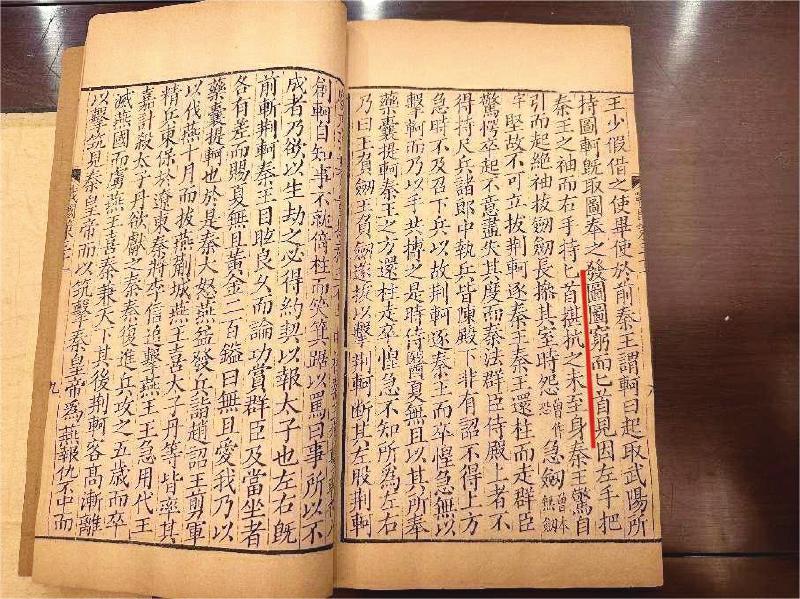 王少假借之使畢使於前秦王謂軻曰起取武陽所
持圖軻既取圖奉之發圖圖窮而匕首見因左手把
秦王之袖而右手持匕首揕抗之未至身秦王驚自
引而起絕袖拔劒劒長摻其室時怨曾作恐急劒曾本無劒
字堅故不可立拔荆軻逐秦王秦王還柱而走群臣
驚愕卒起不意盡失其度而秦法群臣侍殿上者不
得持尺兵諸郎中執兵皆陳殿下非有詔不得上方
急時不及召下兵以故荆軻逐秦王而卒惶急無以
擊軻而乃以手共搏之是時侍醫夏無且以其所奉
藥囊提軻秦王之方還柱走卒惶急不知所為左右
乃曰王負劒王負劒遂拔以擊荆軻斷其左股荆軻
創軻自知事不就倚柱而笑箕踞以罵曰事所以不
成者乃欲以生劫之必得約契以報太子也左右既
前斬荆軻秦王目眩良久而論功賞群臣及當坐者
各有差而賜夏無且黃金二百鎰曰無且愛我乃以
藥囊提軻也於是秦大怒燕益發兵詣趙詔王剪軍
以伐燕十月而拔燕薊城燕王喜太子丹等皆率其
精兵東保於遼東秦將李信追擊燕王王急用代王
嘉計殺太子丹欲獻之秦秦復進兵攻之五歲而卒
滅燕國而虜燕王喜秦兼天下其後荆軻客高漸離
以擊筑見秦皇帝而以筑擊秦皇帝為燕報仇不中而
九